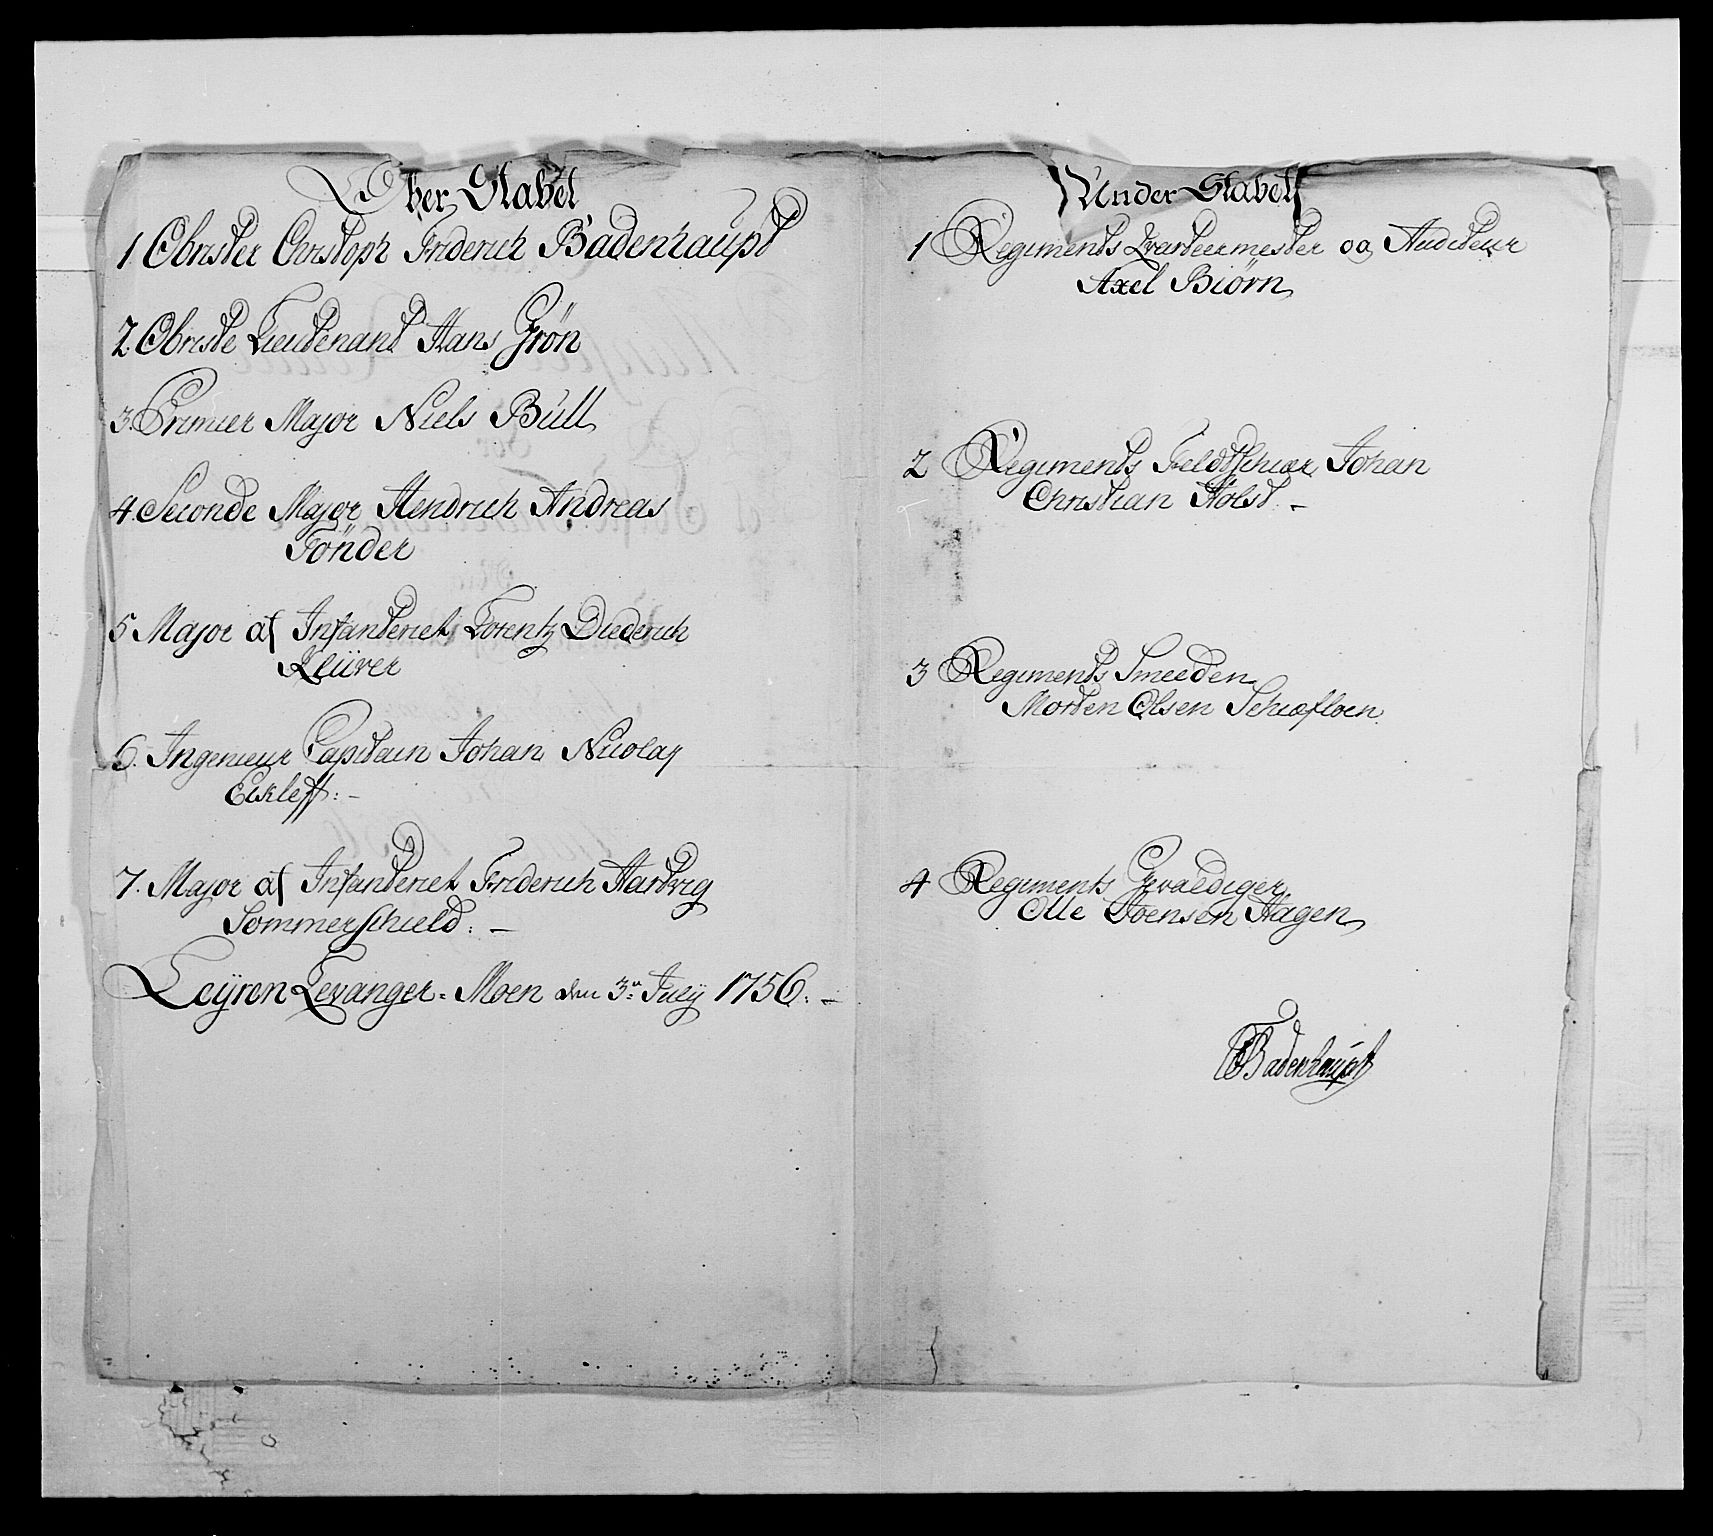 Ober Stabel
1 Obrister Christoph Friderich Badenhaupt
2. Obriste Lieutenant Hans Grön
3. Premier Major Niels Bull
4. Seconde Major Hendrich Andreas
Tönder
5 Major af Infanteriet Lorentz Diederich
Klüver
6. Ingenieur Capitain Johan Nicolay
Eckleff: -
7. Major af Infanteriet Friderich Hartvig
Sommerschield: -
Leÿren Levanger= Moen den 3n Julÿ 1756: -
Under Stabel
1 Regiments Qvarteermester og Auditeur
Axel Biörn
2 Regiments Feldtschiær Johan
Christian Holst. -
3 Regiments Smeeden
Morten Olsen Schiefloen
4 Regiments Gevaldiger
Olle Hagen
CFBadenhaupt